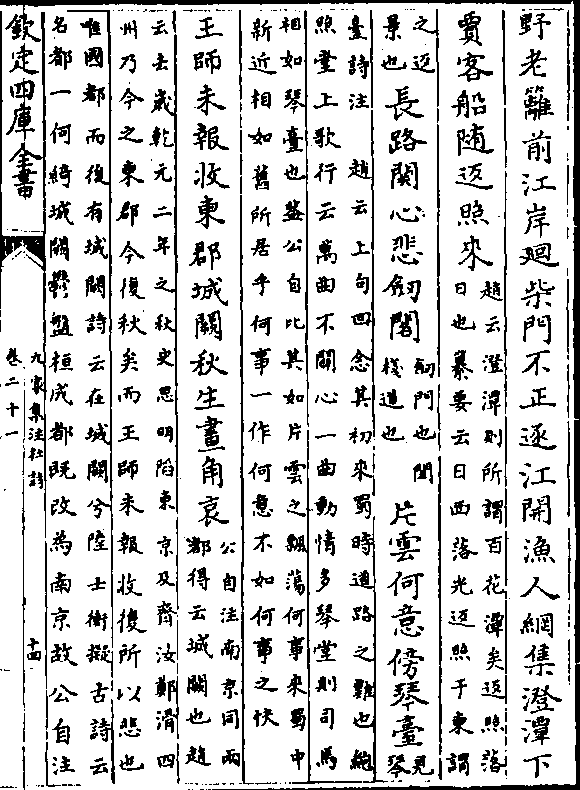 野老籬前江岸廻柴門不正逐江開漁人網集澄潭下
賈客船随返照来趙云澄潭則所謂百花潭矣返照落
日也纂要云日西落光返照于東謂
之返
景也長路關心悲劒閣劒門也閣
棧道也片雲何意傍琴臺見
琴
臺詩注趙云上句回念其初來蜀時道路之難也鮑
照堂上歌行云萬曲不關心一曲動情多琴堂則司馬
相如琴臺也盖公自比其如片雲之飄蕩何事來蜀中
新近相如舊所居乎何事一作何意不如何事之快
王師未報收東郡城闕秋生畫角哀公自注南京同兩
都得云城闕也趙
云去歲乾元二年之秋史思明陷東京及齊汝鄭滑四
州乃今之東郡今復秋矣而王師未報收復所以悲也
唯國都而後有城闕詩云在城闕兮陸士衡擬古詩云
名都一何綺城闕鬱盤桓成都既改為南京故公自注
欽定四庫全書
九家集注杜詩
卷二十一
十四